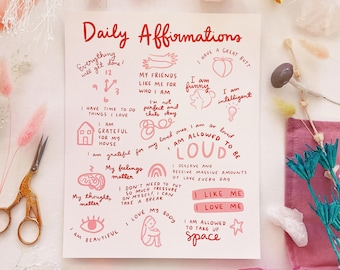 Daily Affirmations
Everything
will get done!
12
9
3
6
MY FRIENDS
LIKE ME FOR
WHO I AM
I HAVE A GREAT BUTT
I am
funny
I am
intelligent
I HAVE TO DO
THINGS I LOVE
I'm not
perfect and
thats okay
I AM
GRATEFUL
FOR MY
HOUSE
I am grateful for my loved ones
I am so loved
I AM ALLOWED TO BE
LOUD
My feelings
matter
I DESERVE AND
RECEIVE MASSIVE AMOUNTS
OF LOVE EVERY DAY
My thoughts
matter
I DON'T NEED TO PUT
SO MUCH PRESSURE
ON MYSELF I CAN
TAKE A BREAK
I LIKE ME
I LOVE ME
I LOVE MY BODY
I AM BEAUTIFUL
I AM ALLOWED
TO TAKE UP
space